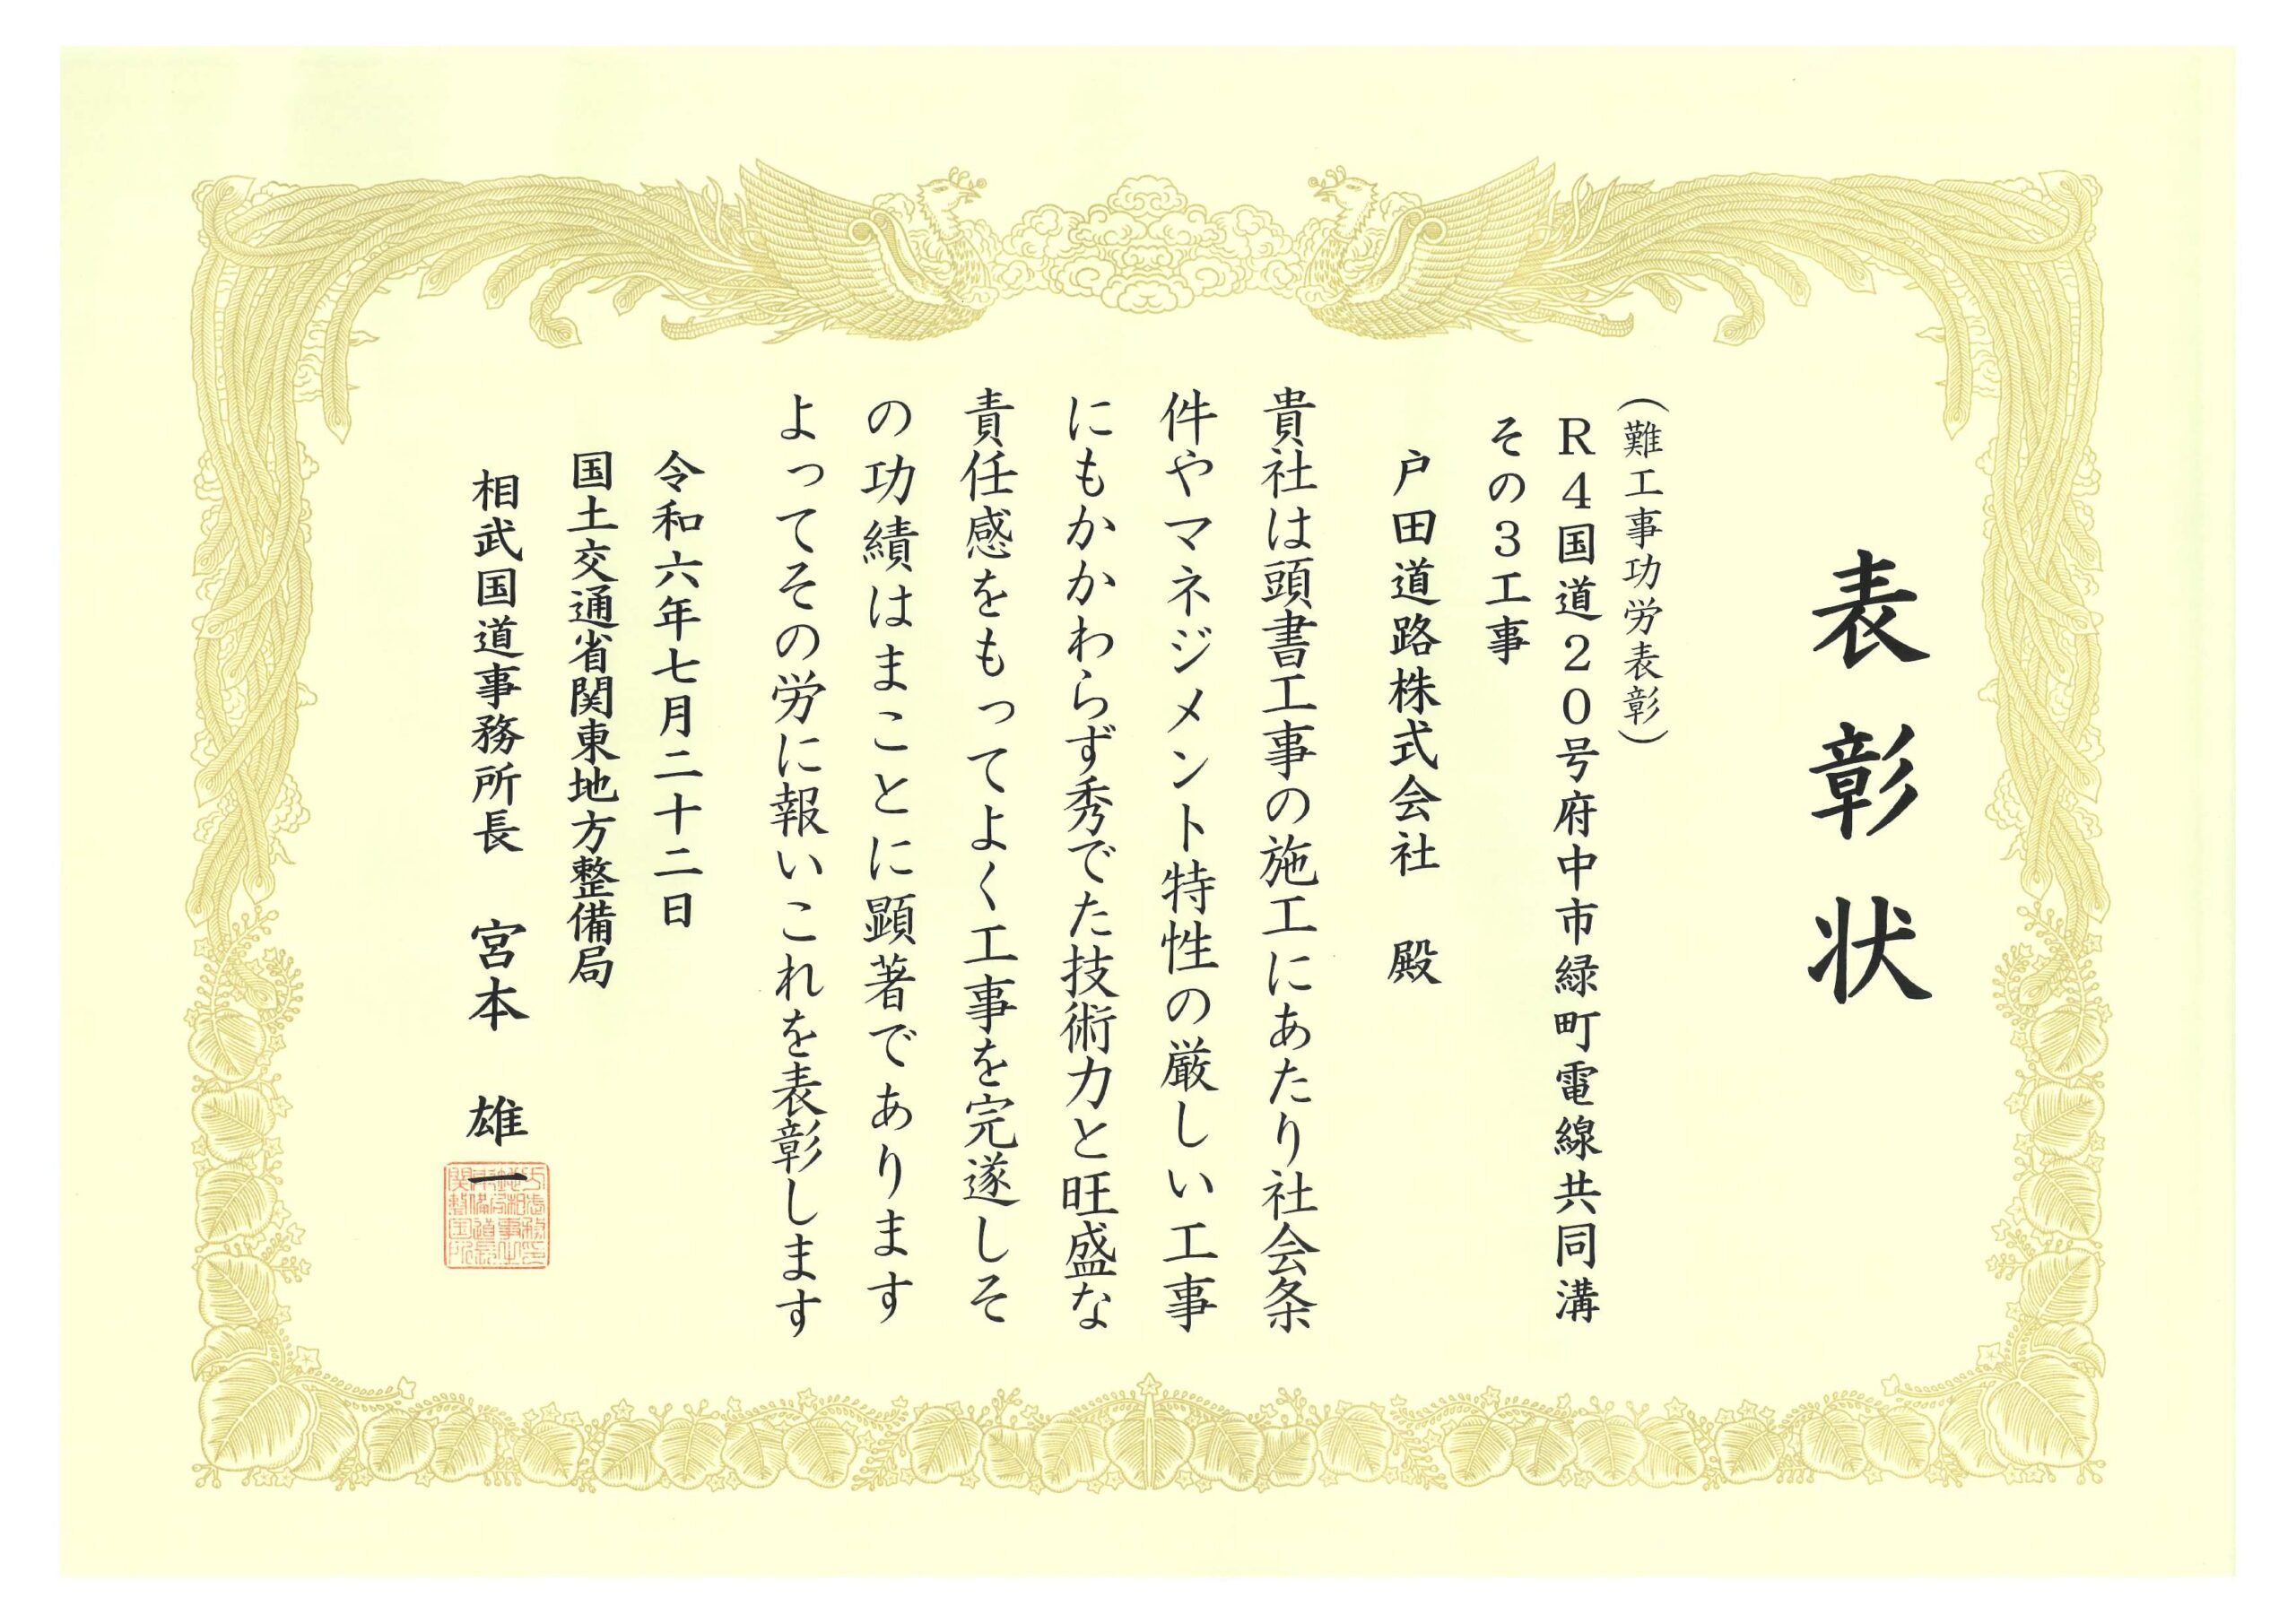 表彰状
（難工事功労表彰）
R4国道20号府中市緑町電線共同溝
その3工事
戸田道路株式会社　殿
貴社は頭書工事の施工にあたり社会条
件やマネジメント特性の厳しい工事
にもかかわらず秀でた技術力と旺盛な
責任感をもってよく工事を完遂しそ
の功績はまことに顕著であります
よってその労に報いこれを表彰します
令和六年七月二十二日
国土交通省関東地方整備局
相武国道事務所長　宮本　雄一